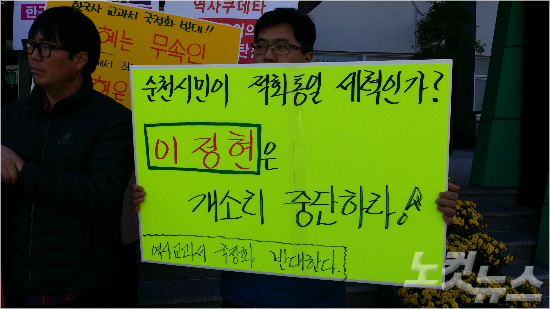 한국사 교과서 국정화 반대!!
혜는 무속인
에서 최
현은
역사쿠데타
순천시민이 적화통일 세력인가?
이정현은
개소리 중단하라!
역사교과서 국정화 반대한다.
노컷뉴스